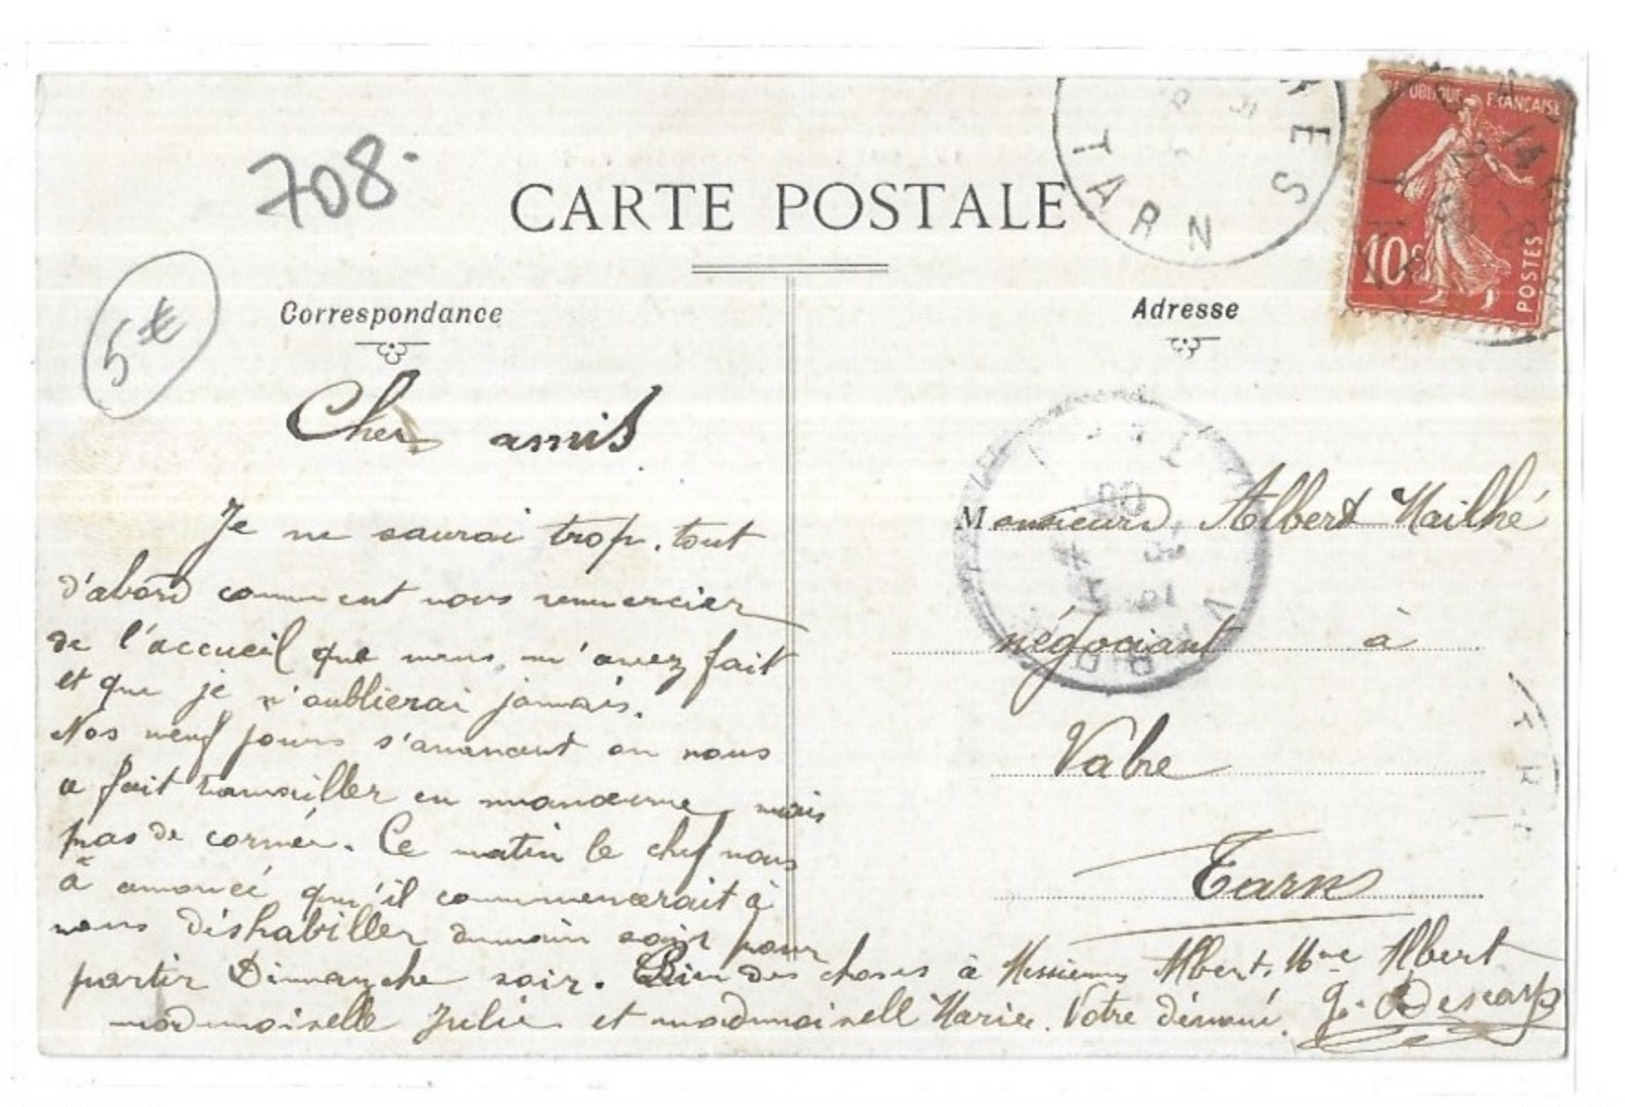 708.
5€
CARTE POSTALE
TARN
RÉPUBLIQUE FRANÇAISE
10c
POSTES
Correspondance
Adresse
Cher amis
Je ne saurai trop. tout
d'abord comment vous remercier
de l'accueil que vous m'avez fait
et que je n'oublierai jamais.
Nos neuf jours s'avancent on nous
a fait travailler en manœuvre mais
pas de corvée. Ce matin le chef nous
à anoncé qu'il commencerait à
nous déshabiller demain soir pour
partir Dimanche soir. Bien des choses à Messieurs Albert, Mme Albert
mademoiselle Julie et mademoiselle Marie. Votre dévoué. J. Descarp
Monsieurs Albert Mailhé
négociant à
Vabre
Tarn